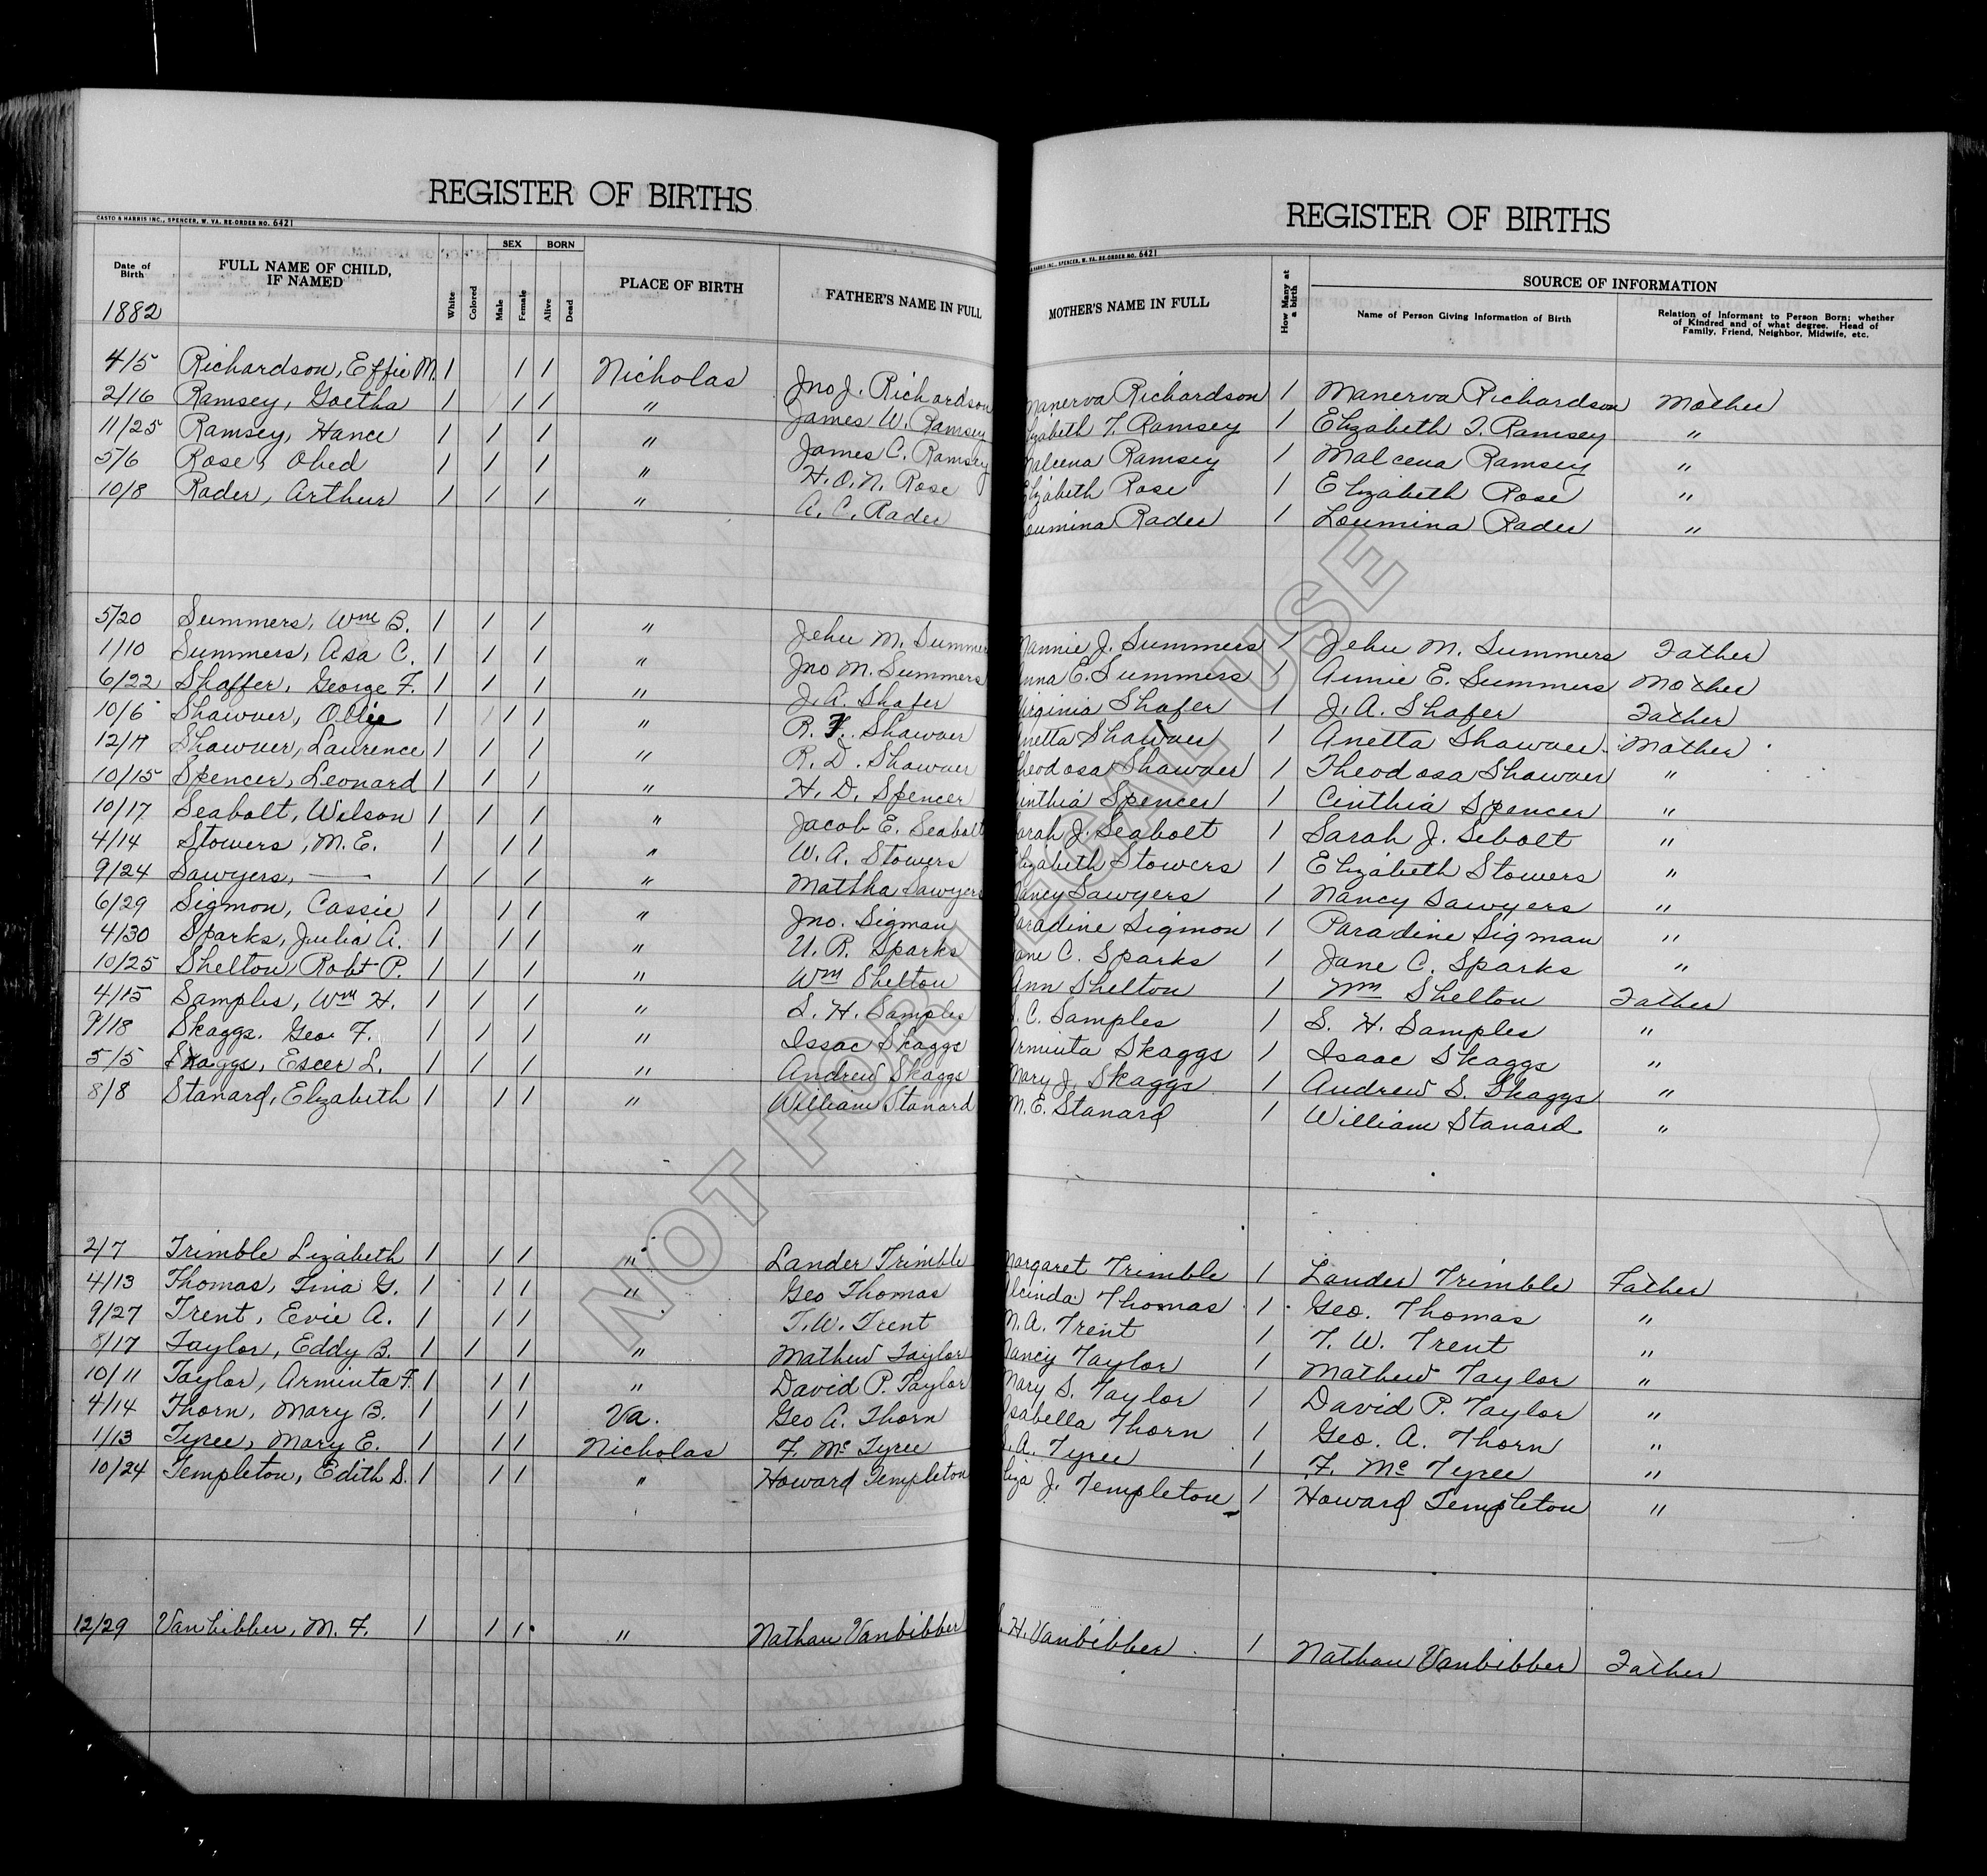 REGISTER OF BIRTHS
CASTO & HARRIS INC., SPENCER, W. VA. RE-ORDER NO. 6421
Date of Birth FULL NAME OF CHILD, IF NAMED White Colored SEX Male Female BORN Alive Dead PLACE OF BIRTH FATHER'S NAME IN FULL
1882
4/5 Richardson, Effie M. 1 1 1 Nicholas Jno J. Richardson
2/16 Ramsey, Goetha 1 1 1 " James W. Ramsey
11/25 Ramsey, Hance 1 1 1 " James C. Ramsey
5/6 Rose, Obed 1 1 1 " H. O. N. Rose
10/8 Rader, Arthur 1 1 1 " A. C. Rader
5/20 Summers, Wm B. 1 1 1 " Jehu M. Summers
1/10 Summers, Asa C. 1 1 1 " Jno M. Summers
6/22 Shaffer, George F. 1 1 1 " J. A. Shafer
10/6 Shawver, Ollie 1 1 1 " R. F. Shawver
12/17 Shawver, Laurence 1 1 1 " R. D. Shawver
10/15 Spencer, Leonard 1 1 1 " H. D. Spencer
10/17 Seabolt, Wilson 1 1 1 " Jacob E. Seabolt
4/14 Stowers, M. E. 1 1 1 " W. A. Stowers
9/24 Sawyers, — 1 1 1 " Mattha Sawyers
6/29 Sigmon, Cassie 1 1 1 " Jno. Sigman
4/30 Sparks, Julia A. 1 1 1 " U. R. Sparks
10/25 Shelton, Robt P. 1 1 1 " Wm Shelton
4/15 Samples, Wm H. 1 1 1 " S. H. Samples
9/18 Skaggs. Geo. F. 1 1 1 " Issac Skaggs
5/5 Skaggs, Escer L. 1 1 1 " Andrew Skaggs
8/8 Stanard, Elizabeth 1 1 1 " William Stanard
2/7 Trimble Lizabeth 1 1 1 " Lander Trimble
4/13 Thomas, Tina G. 1 1 1 " Geo Thomas
9/27 Trent, Evie A. 1 1 1 T. W. Trent
8/17 Taylor, Eddy B. 1 1 1 " Mathew Taylor
10/11 Taylor, Arminta F. 1 1 1 " David P. Taylor
4/14 Thorn, Mary B. 1 1 1 Va. Geo A. Thorn
1/13 Tyree, Mary E. 1 1 1 Nicholas F. Mc Tyree
10/24 Templeton, Edith S. 1 1 1 " Howard Templeton
12/29 Vanbibber, M. F. 1 1 1 " Nathan Vanbibber
REGISTER OF BIRTHS
& HARRIS INC., SPENCER, W. VA. RE-ORDER NO. 6421
MOTHER'S NAME IN FULL How Many at a birth SOURCE OF INFORMATION
Name of Person Giving Information of Birth Relation of Informant to Person Born; whether of Kindred and of what degree. Head of Family, Friend, Neighbor, Midwife, etc.
Manerva Richardson 1 Manerva Richardson Mother
lizabeth T. Ramsey 1 Elizabeth T. Ramsey "
Malcena Ramsey 1 Malcena Ramsey "
Elizabeth Rose 1 Elizabeth Rose "
Loumina Rader 1 Loumina Rader "
Nannie J. Summers 1 Jehu M. Summers Father
Anna E. Summers 1 Annie E. Summers Mother
Virginia Shafer 1 J. A. Shafer Father
netta Shawver 1 Anetta Shawver Mother
heodosa Shawver 1 Theodosa Shawver "
inthia Spencer 1 Cinthia Spencer "
arah J. Seabolt 1 Sarah J. Sebolt "
lizabeth Stowers 1 Elizabeth Stowers "
Nancy Sawyers 1 Nancy Sawyers "
aradine Sigmon 1 Paradine Sigman "
ane C. Sparks 1 Jane C. Sparks "
Ann Shelton 1 Wm Shelton Father
S. C. Samples 1 S. H. Samples "
rminta Skaggs 1 Isaac Skaggs "
Mary J. Skaggs 1 Andrew S. Skaggs "
M. E. Stanard 1 William Stanard "
Margaret Trimble 1 Lander Trimble Father
lcinda Thomas 1 Geo. Thomas "
N. A. Trent 1 T. W. Trent "
Nancy Taylor 1 Mathew Taylor "
Mary S. Taylor 1 David P. Taylor "
Isabella Thorn 1 Geo. A. Thorn "
S. A. Tyree 1 F. Mc Tyree "
liza J. Templeton 1 Howard Templeton "
H. Vanbibber 1 Nathan Vanbibber Father
NOT FOR LEGAL USE